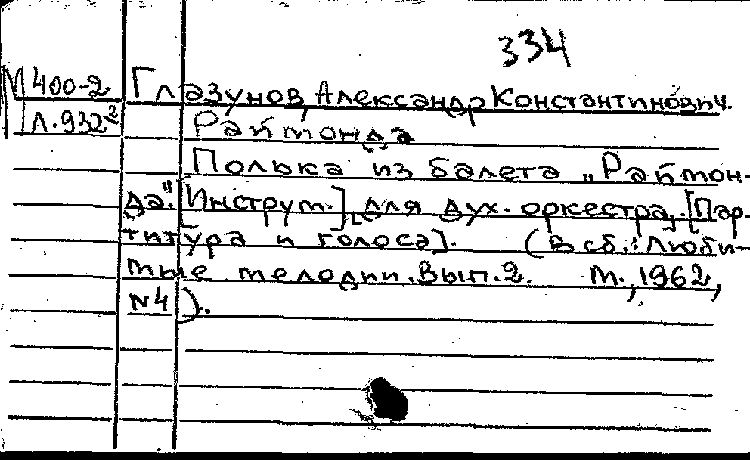 334
М400-2 Глазунов, Александр Константинович.
Л.932² Раймонда
Полька из балета „Раймон-
да". [Инструм.], для дух. оркестра, [Пар-
титура и голоса]. (В сб.: Люби-
мые мелодии. Вып. 2. М., 1962,
№4).